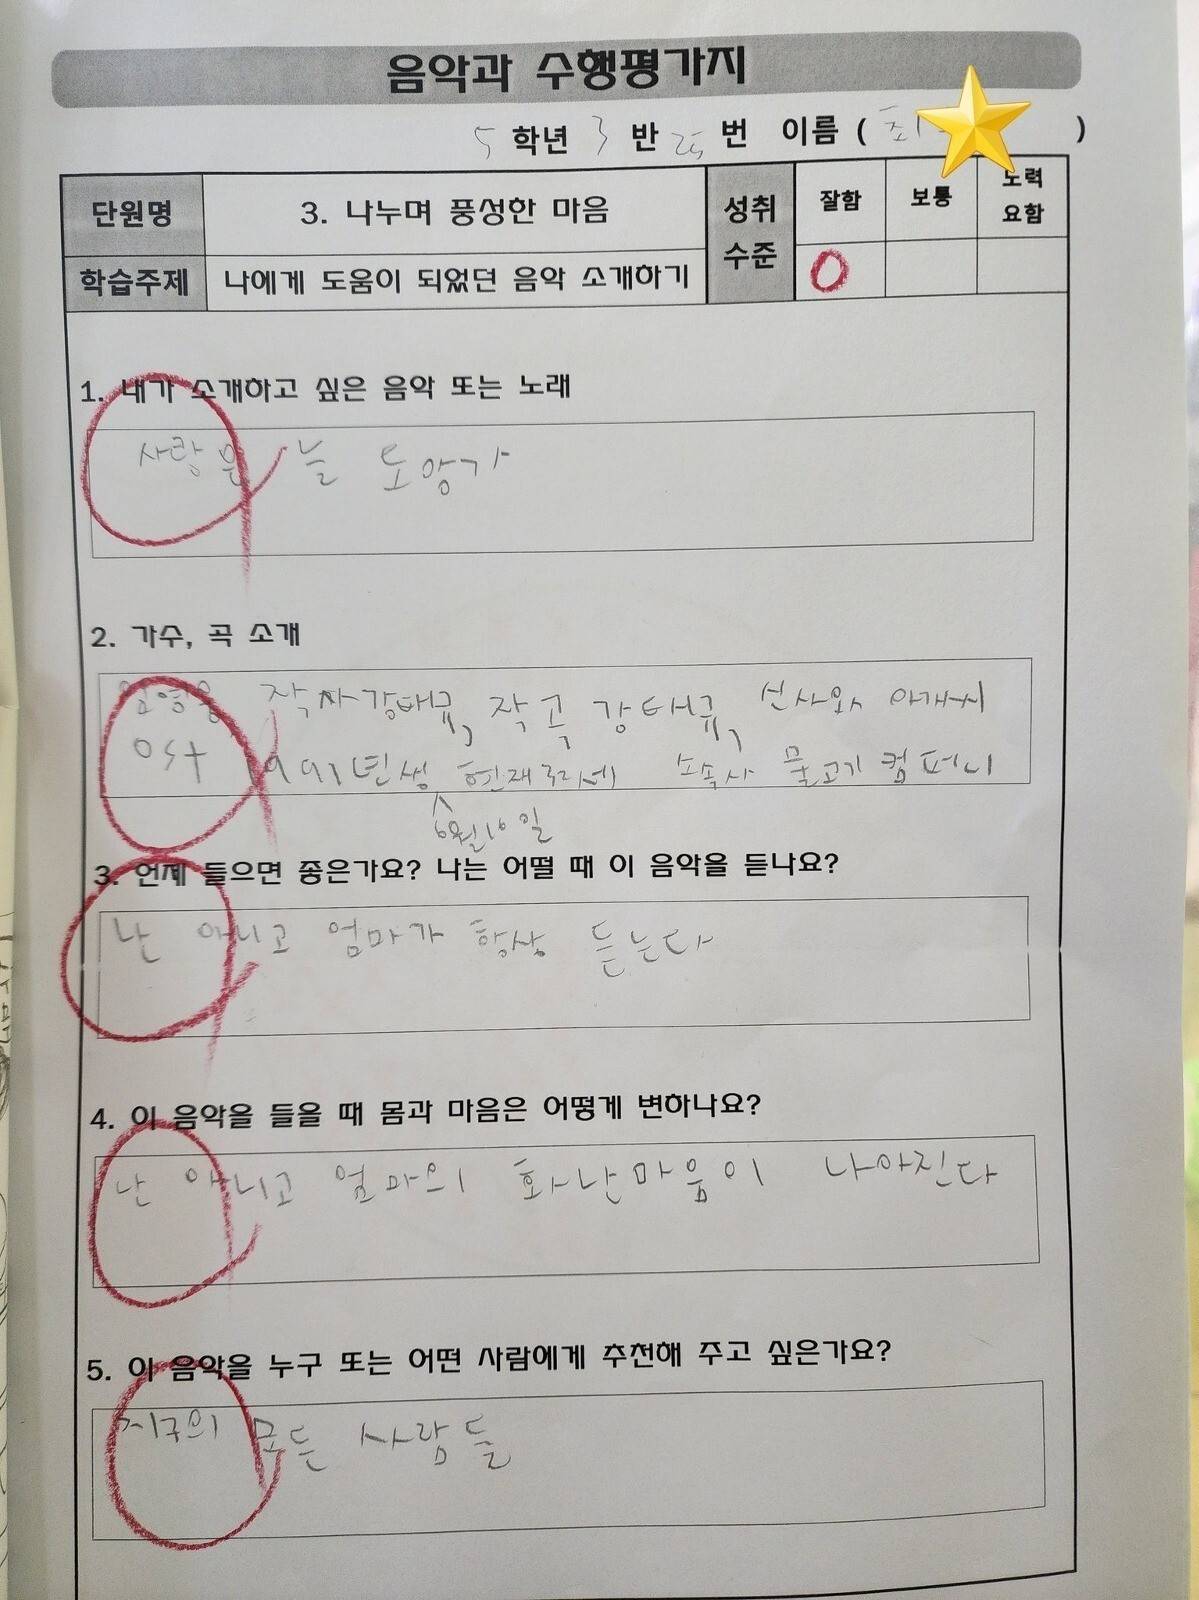 음악과 수행평가지
5 학년 3 반 25 번 이름 ( 최 )
단원명 3. 나누며 풍성한 마음 성취 수준 잘함 보통 노력 요함
학습주제 나에게 도움이 되었던 음악 소개하기 O
1. 내가 소개하고 싶은 음악 또는 노래
사랑은 늘 도망가
2. 가수, 곡 소개
임영웅 작사강태규, 작곡 강태규, 신사와 아가씨
ost 1991년생 현재 32세 소속사 물고기 컴퍼니
6월16일
3. 언제 들으면 좋은가요? 나는 어떨 때 이 음악을 듣나요?
난 아니고 엄마가 항상 듣는다
4. 이 음악을 들을 때 몸과 마음은 어떻게 변하나요?
난 아니고 엄마의 화난마음이 나아진다
5. 이 음악을 누구 또는 어떤 사람에게 추천해 주고 싶은가요?
지구의 모든 사람들